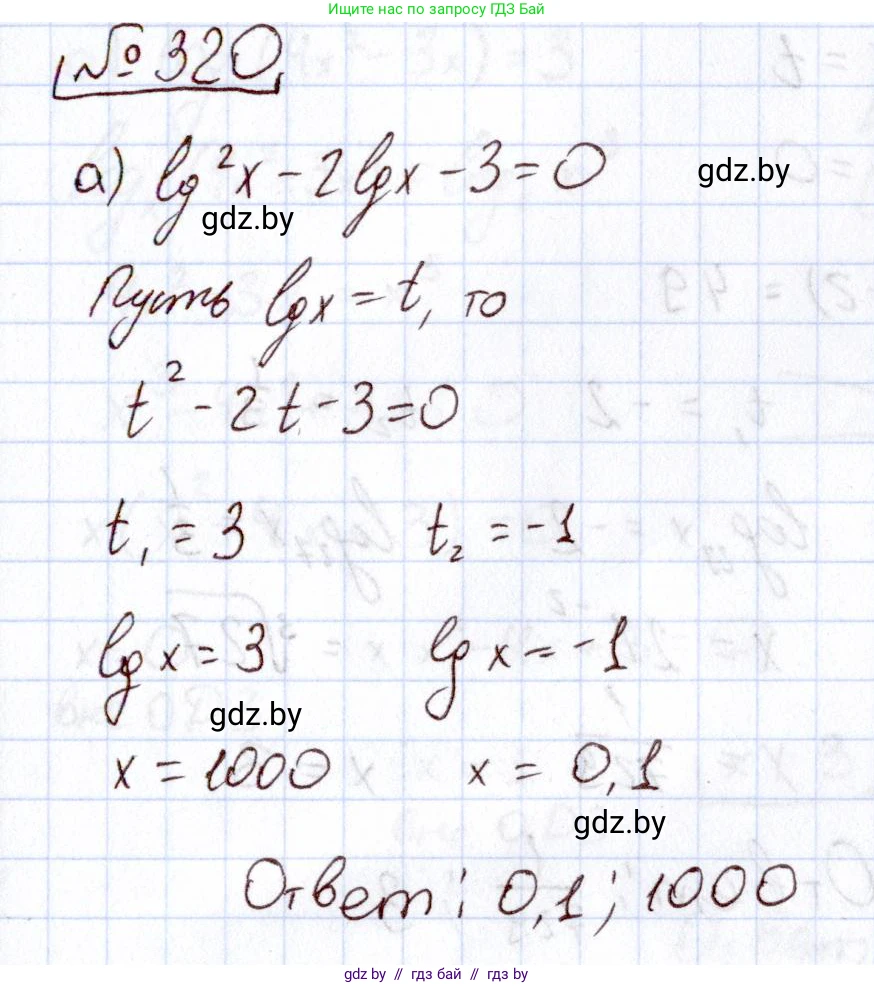 Ищите нас по запросу ГДЗ Бай
№ 320
а) lg²x - 2lgx - 3 = 0
gdz.by
gdz.by
Пусть lgx = t, то
t² - 2t - 3 = 0
t₁ = 3 t₂ = -1
lg x = 3 lg x = -1
gdz.by
x = 1000 x = 0,1
gdz.by
Ответ: 0,1; 1000
gdz.by // гдз бай // гдз by